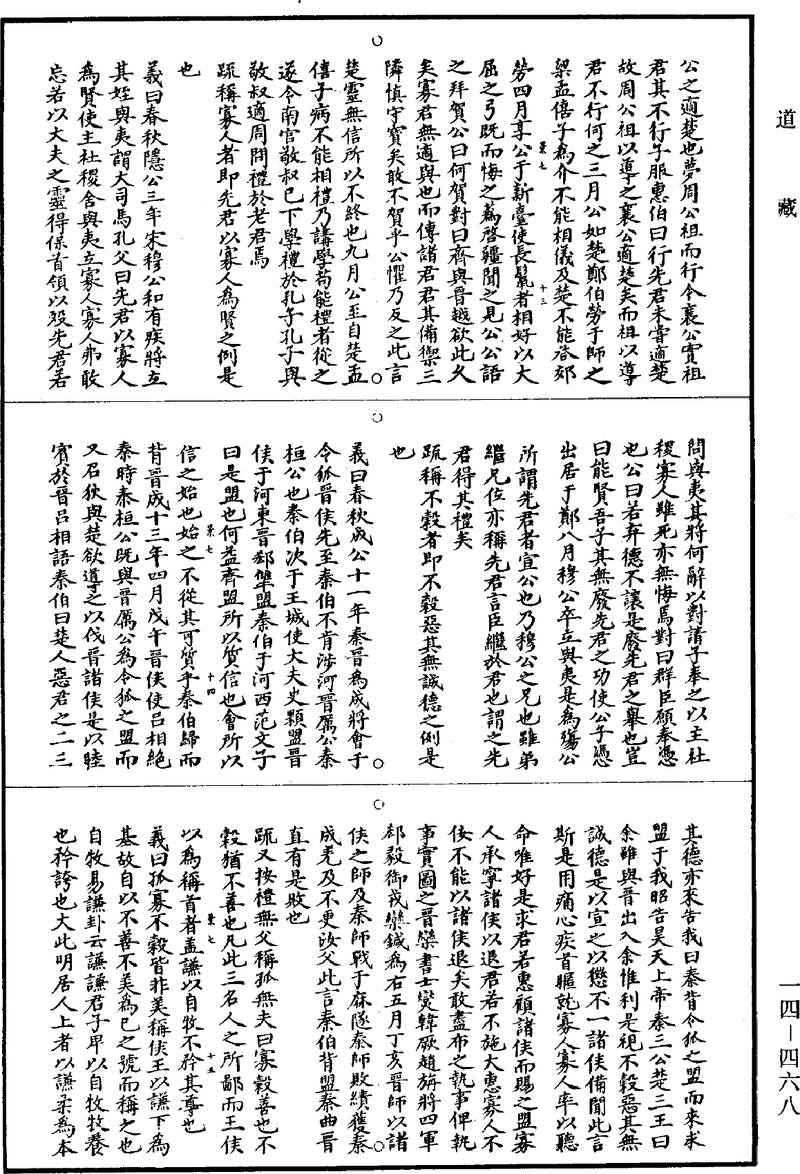 道藏
公之適楚也夢周公祖而行今襄公實祖
君其不行子服惠伯曰行先君未嘗適楚
故周公祖以導之襄公適楚矣而祖以導
君不行何之三月公如楚鄭伯勞于師之
梁孟僖子為介不能相儀及楚不能荅郊
景七
十三
勞四月享公于新臺使長鬛者相好以大
屈之弓既而悔之薳啓疆聞之見公公語
之拜賀公曰何賀對曰齊與晉越欲此久
矣寡君無適與也而傳諸君君其備禦三
隣慎守寶矣敢不賀乎公懼乃反之此言
楚靈無信所以不終也九月公至自楚孟
僖子病不能相禮乃講學苟能禮者從之
遂令南宮敬叔已下學禮於孔子孔子與
敬叔適周問禮於老君焉
疏稱寡人者即先君以寡人為賢之例是
也
義曰春秋隱公三年宋穆公和有疾將立
其姪與夷謂大司馬孔父曰先君以寡人
為賢使主社稷舍與夷立寡人寡人弗敢
忘若以大夫之靈得保首領以殁先君若
問與夷其將何辭以對請子奉之以主社
稷寡人雖死亦無悔焉對曰群臣願奉馮
也公曰若弃德不讓是廢先君之舉也豈
曰能賢吾子其無廢先君之功使公子馮
出居于鄭八月穆公卒立與夷是為殤公
所謂先君者宣公也乃穆公之兄也雖弟
繼兄位亦稱先君言臣繼於君也謂之先
君得其禮矣
疏稱不穀者即不穀惡其無誠德之例是
也
義曰春秋成公十一年秦晉為成將會于
令狐晉侯先至秦伯不肯涉河晉厲公秦
桓公也秦伯次于王城使大夫史顆盟晉
侯于河東晉郄犨盟秦伯于河西范文子
曰是盟也何益齊盟所以質信也會所以
信之始也始之不從其可質乎秦伯歸而
景七
十四
背晉成十三年四月戊午晉侯使呂相絕
秦時秦桓公既與晉厲公為令狐之盟而
又召狄與楚欲導之以伐晉諸侯是以睦
賓於晉呂相語秦伯曰楚人惡君之二三
其德亦來告我曰秦背令狐之盟而來求
盟于我昭告昊天上帝秦三公楚三王曰
余雖與晉出入余惟利是視不穀惡其無
誠德是以宣之以懲不一諸侯備聞此言
斯是用痛心疾首暱就寡人寡人率以聽
命唯好是求君若惠顧諸侯而賜之盟寡
人承寧諸侯以退君若不施大惠寡人不
佞不能以諸侯退矣敢盡布之執事俾執
事實圖之晉欒書士燮韓厥趙旃將四軍
郄毅御戎欒鍼為右五月丁亥晉師以諸
侯之師及秦師戰于麻隧秦師敗績獲秦
成差及不更汝父此言秦伯背盟秦曲晉
直有是敗也
疏又按禮無父稱孤無夫曰寡穀善也不
穀猶不善也凡此三名人之所鄙而王侯
景七
十五
以為稱首者蓋謙以自牧不矜其尊也
義曰孤寡不穀皆非美稱侯王以謙下為
基故自以不善不美為己之號而稱之也
自牧易謙卦云謙謙君子卑以自牧牧養
也矜誇也大此明居人上者以謙柔為本
一四－四六八